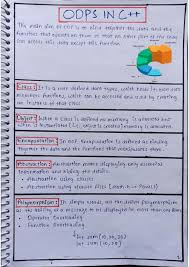 OOPS IN C++
The main aim of OOP is to bind together the data and the
functions that operate on them so that no other part of the code
can access this data except this function.
Class : It is a user defined data types, which holds its own data
members functions, which can be accessed and used by creating
an instance of that class
Object : When a class is defined no memory is allocated but when
it is instantiated (i.e. object is created) memory is allocated.
Encapsulation : In OOP, Encapsulation is defined as binding
together the data and the functions that manipulates them.
Abstraction : Abstraction means displaying only essential
information and hiding the details.
• Abstraction using classes
• Abstraction using Header files (math.h → pow())
Polymorphism : In simple words, we can define polymorphism
as the ability of a message to be displayed in more than one form.
• Operator Overloading
• Function Overloading
int sum (10, 20, 30)
int sum (10, 20)